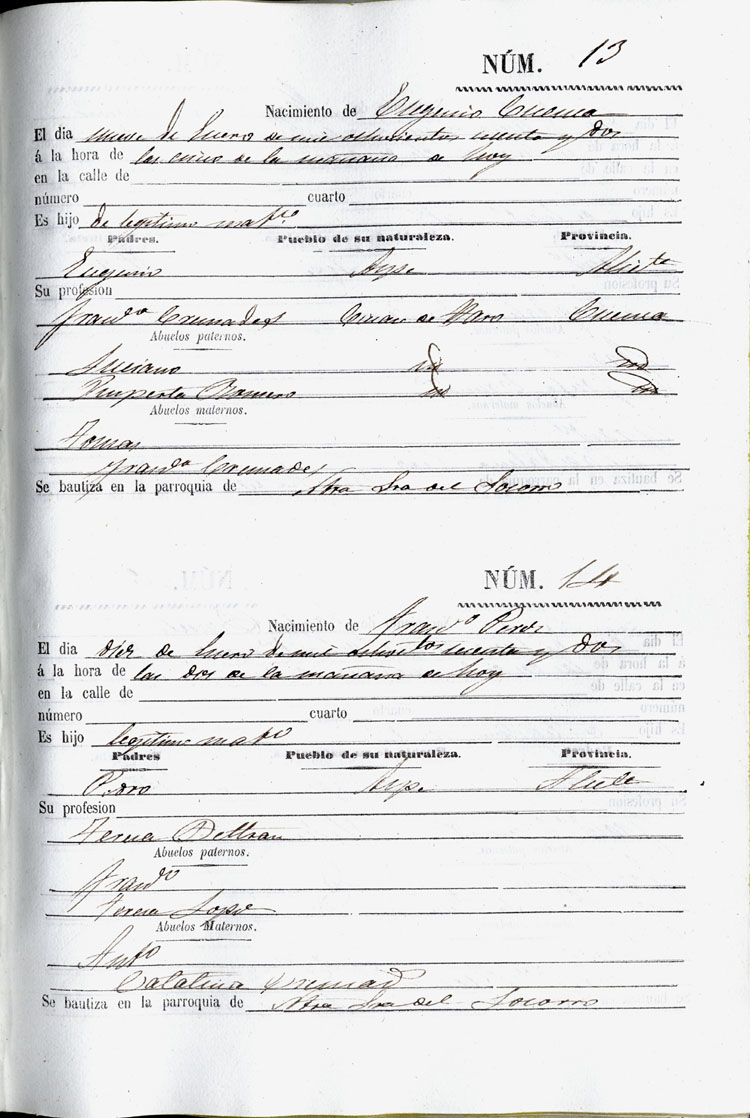 NÚM. 13
Nacimiento de Eugenio Cuenca
El dia nueve de Enero de mil ochocientos setenta y dos
á la hora de las cinco de la mañana de hoy
en la calle de
número cuarto
Es hijo de legitimo matº
Padres. Pueblo de su naturaleza. Provincia.
Eugenio Aspe Alicte
Su profesion
Franca Cremades Casas de Haro Cuenca
Abuelos paternos.
Luciano
Ruperta Romero
Abuelos maternos.
Tomas
Franca Cremades
Se bautiza en la parroquia de Ntra Sra del Socorro
NÚM. 14
Nacimiento de Franco Perez
El dia diez de Enero de mil ochocientos setenta y dos
á la hora de las dos de la mañana de hoy
en la calle de
número cuarto
Es hijo legitimo matº
Padres Pueblo de su naturaleza. Provincia.
Pedro Aspe Alicte
Su profesion
Teresa Beltran
Abuelos paternos.
Franco
Teresa Lopez
Abuelos Maternos.
Antº
Catalina Cremad
Se bautiza en la parroquia de Ntra Sra del Socorro